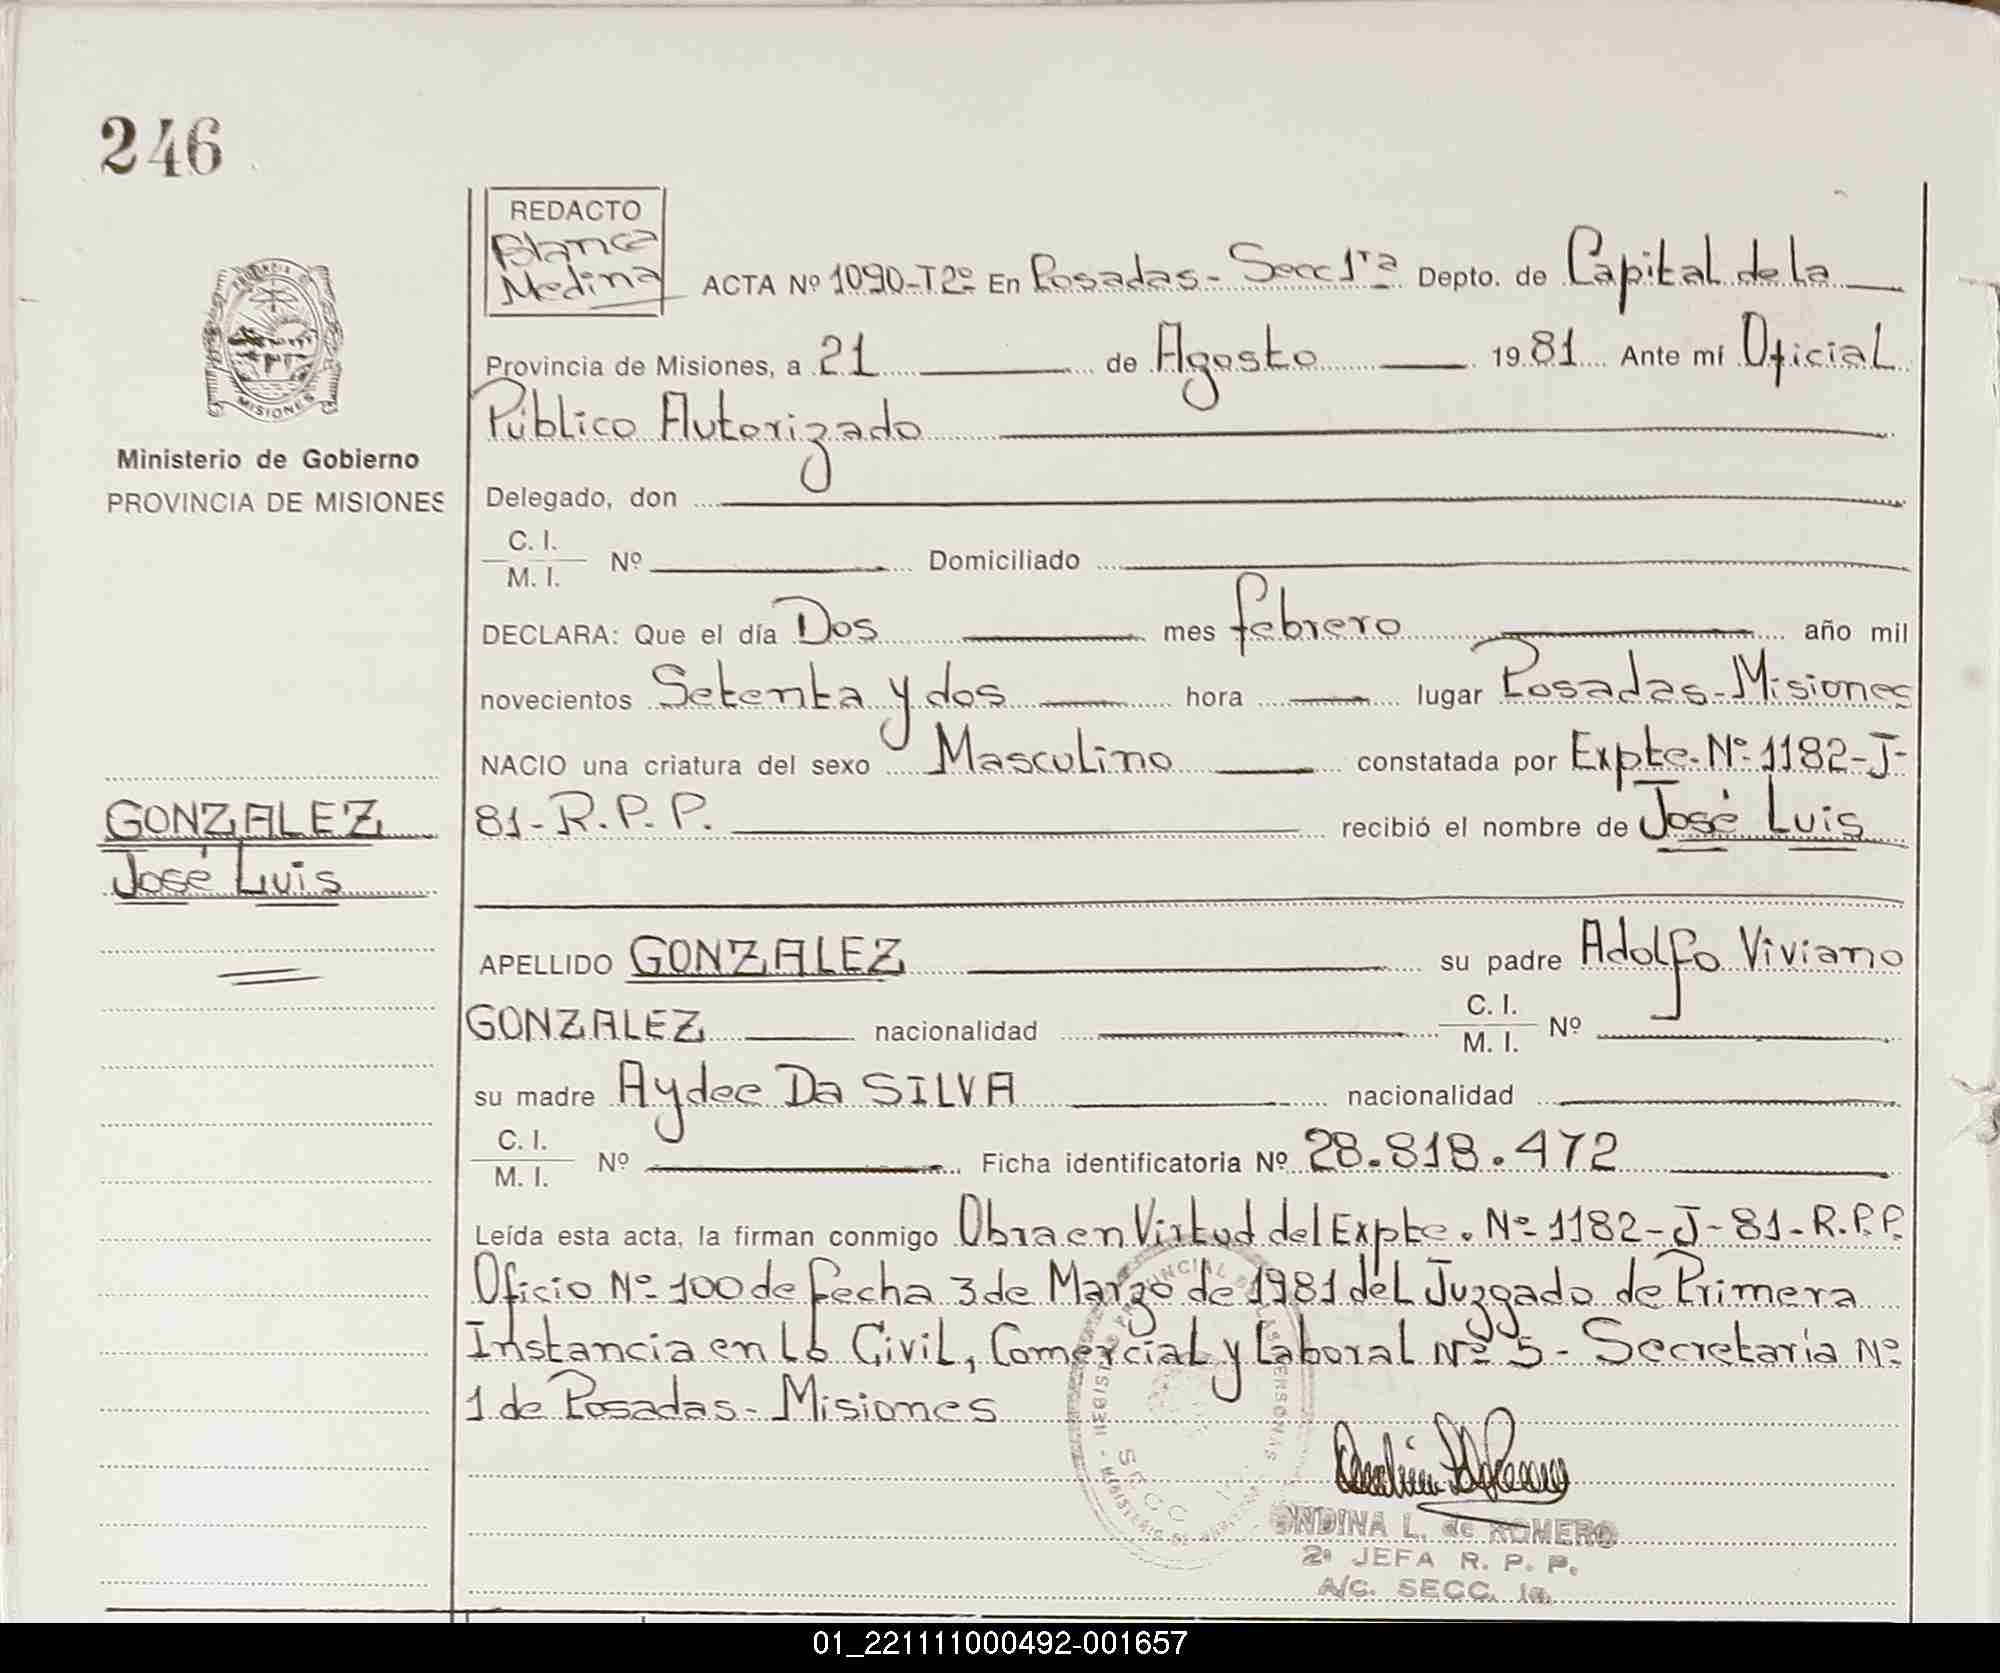 246
REDACTO
Blanca
Medina
ACTA Nº 1090-T2º En Posadas- Secc 1ra Depto. de Capital de la
Provincia de Misiones, a 21 de Agosto 1981 Ante mí Oficial
Público Autorizado
MISIONES
Ministerio de Gobierno
PROVINCIA DE MISIONES
Delegado, don
C. I.
M. I. Nº Domiciliado
DECLARA: Que el día Dos mes febrero año mil
novecientos Setenta y dos hora lugar Posadas-Misiones
NACIO una criatura del sexo Masculino constatada por Expte. Nº 1182-J-
81-R.P.P. recibió el nombre de José Luis
GONZALEZ
José Luis
APELLIDO GONZALEZ su padre Adolfo Viviano
GONZALEZ nacionalidad C. I.
M. I. Nº
su madre Aydee Da SILVA nacionalidad
C. I.
M. I. Nº Ficha identificatoria Nº 28.818.472
Leída esta acta, la firman conmigo Obra en Virtud del Expte. Nº 1182-J-81-R.P.P.
Oficio Nº 100 de fecha 3 de Marzo de 1981 del Juzgado de Primera
Instancia en Lo Civil, Comercial y Laboral Nº 5 - Secretaría Nº
1 de Posadas- Misiones
SECC
ONDINA L. de ROMERO
2a JEFA R. P. P.
A/C. SECC. 1a.
01_221111000492-001657